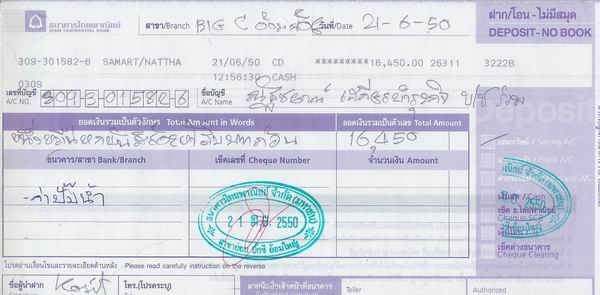 ธนาคารไทยพาณิชย์ สาขา/Branch BIG C อ้อมใหญ่ วันที่/Date 21-6-50 ฝาก/โอน - ไม่มีสมุด
SIAM COMMERCIAL BANK DEPOSIT-NO BOOK
309-301582-6 SAMART/NATTHA 21/06/50 CD *********16,450.00 26311 3222B
0309 12:56130 CASH
เลขที่บัญชี A/C NO. 309-3-01582-6 ชื่อบัญชี A/C Name
ยอดเงินรวมเป็นตัวอักษร Total Amount in Words ยอดเงินรวมเป็นตัวเลข Total Amount
หนึ่งหมื่นหกพันสี่ร้อยห้าสิบบาทถ้วน 16,450
ออมทรัพย์ / Saving A/C
ธนาคาร/สาขา Bank/Branch เช็คเลขที่ Cheque Number จำนวนเงิน Amount
- ค่าปั๊มน้ำ
ธนาคารไทยพาณิชย์ จำกัด (มหาชน)
21 มิ.ย. 2550
2550
เงินสด / Cash
เช็ค ธ.ไทยพาณิชย์
Cheque SCB
เช็คต่างธนาคาร
Cheque Clearing
โปรดอ่านเงื่อนไขและรายละเอียดด้านหลัง Please read carefully instruction on the reverse
ชื่อผู้นำฝาก โทร.(โปรดระบุ) ลายมือชื่อเจ้าหน้าที่ธนาคาร